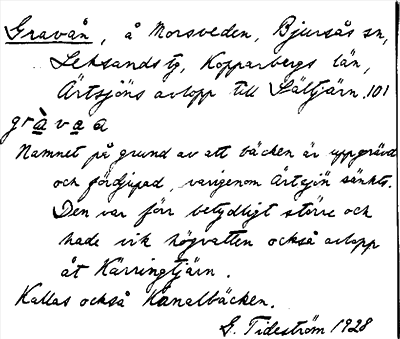 Gravån, å Morsveden, Bjursås sn,
Leksands tg, Kopparbergs län,
Ärtsjöns avlopp till Sältjärn, 101
gràvaa
Namnet på grund av att bäcken är uppgrävd
och fördjupad, varigenom Ärtsjön sänkts.
Den var förr betydligt större och
hade vik högvatten också avlopp
åt Kärringtjärn.
Kallas också Kanalbäcken.
G. Tideström 1928